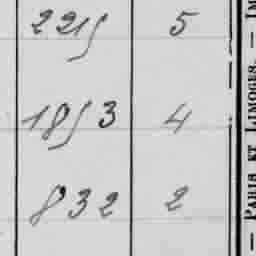 2215 5
1853 4
832 2
— PARIS ET LIMOGES. —